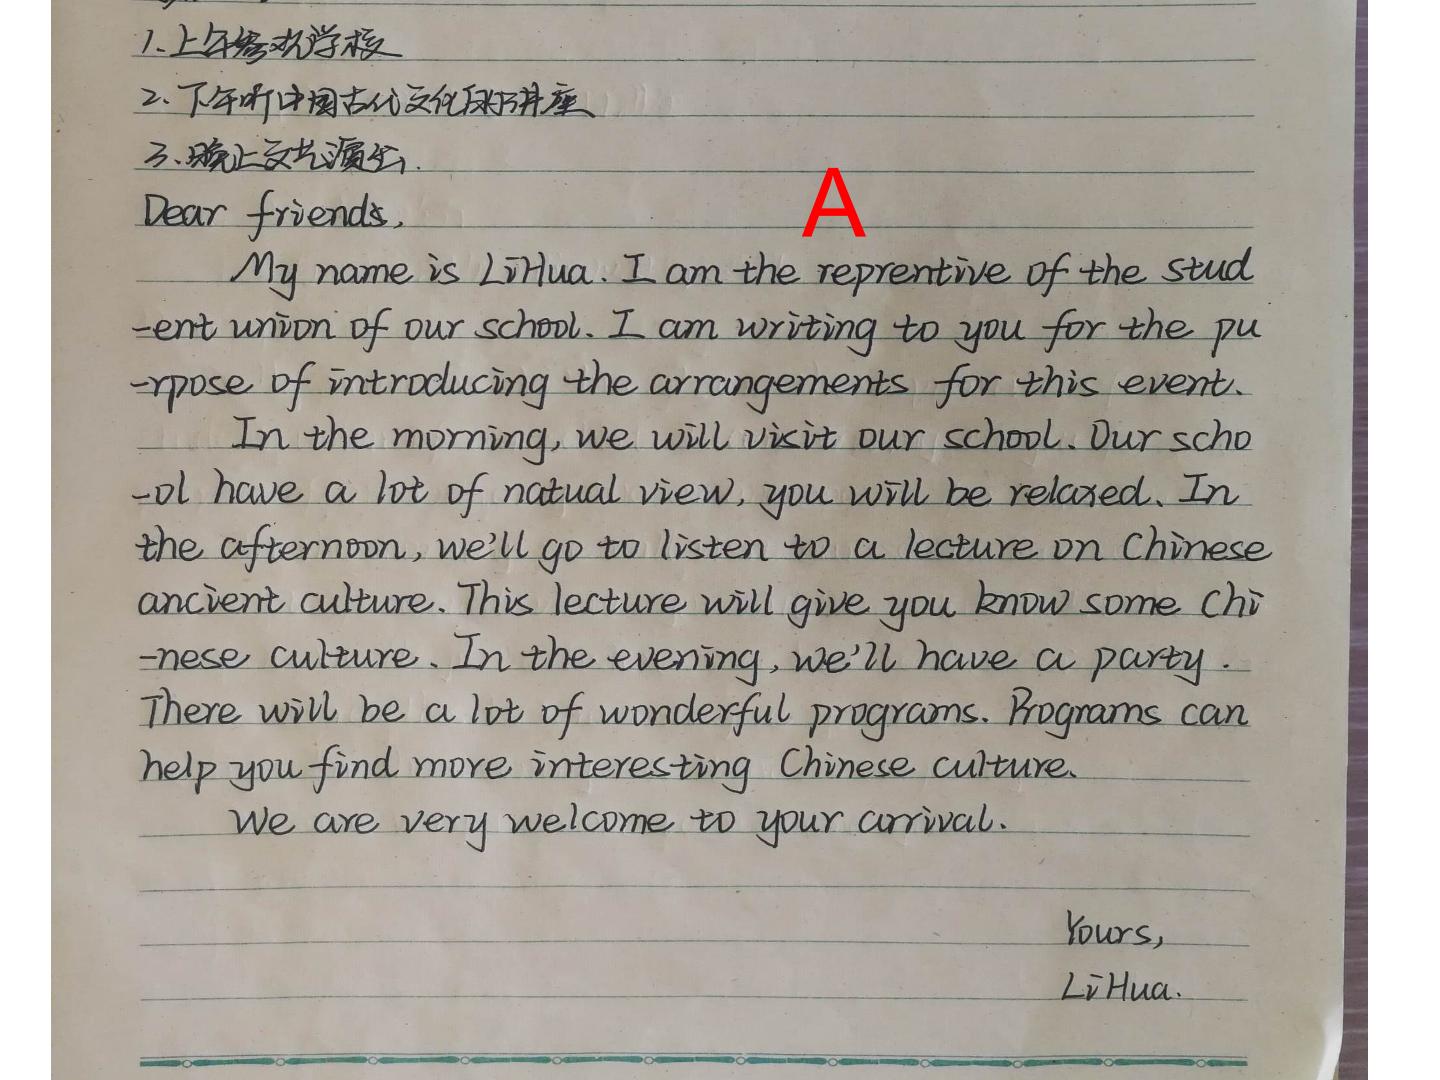 1.上午参观学校
2.下午听中国古代文化的讲座
3.晚上文艺演出.
A
Dear friends,
My name is LiHua. I am the reprentive of the stud
-ent union of our school. I am writing to you for the pu
-rpose of introducing the arrangements for this event.
In the morning, we will visit our school. Our scho
-ol have a lot of natual view, you will be relaxed. In
the afternoon, we'll go to listen to a lecture on Chinese
ancient culture. This lecture will give you know some Chi
-nese culture. In the evening, we'll have a party.
There will be a lot of wonderful programs. Programs can
help you find more interesting Chinese culture.
We are very welcome to your arrival.
Yours,
LiHua.